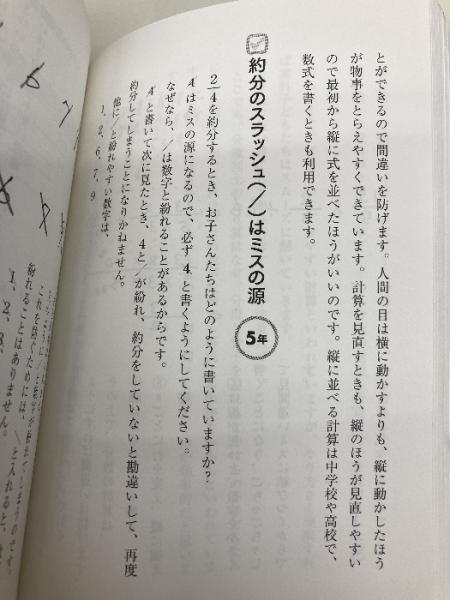 とができるので間違いを防げます。人間の目は横に動かすよりも、縦に動かしたほう
が物事をとらえやすくできています。計算を見直すときも、縦のほうが見直しやすい
ので最初から縦に式を並べたほうがいいのです。縦に並べる計算は中学校や高校で、
数式を書くときも利用できます。
約分のスラッシュ(／)はミスの源
5年
2/4を約分するとき、お子さんたちはどのように書いていますか？
4̸はミスの源になるので、必ず4⃥と書くようにしてください。
なぜなら、／は数字と紛れることがあるからです。
4̸と書いて次に見たとき、4と／が紛れ、約分をしていないと勘違いして、再度
約分してしまうことになりかねません。
他に／と紛れやすい数字は、
1、2、6、7、9
1、2、3、
紛れることはありません。
これを防ぐためには、＼と入れると、